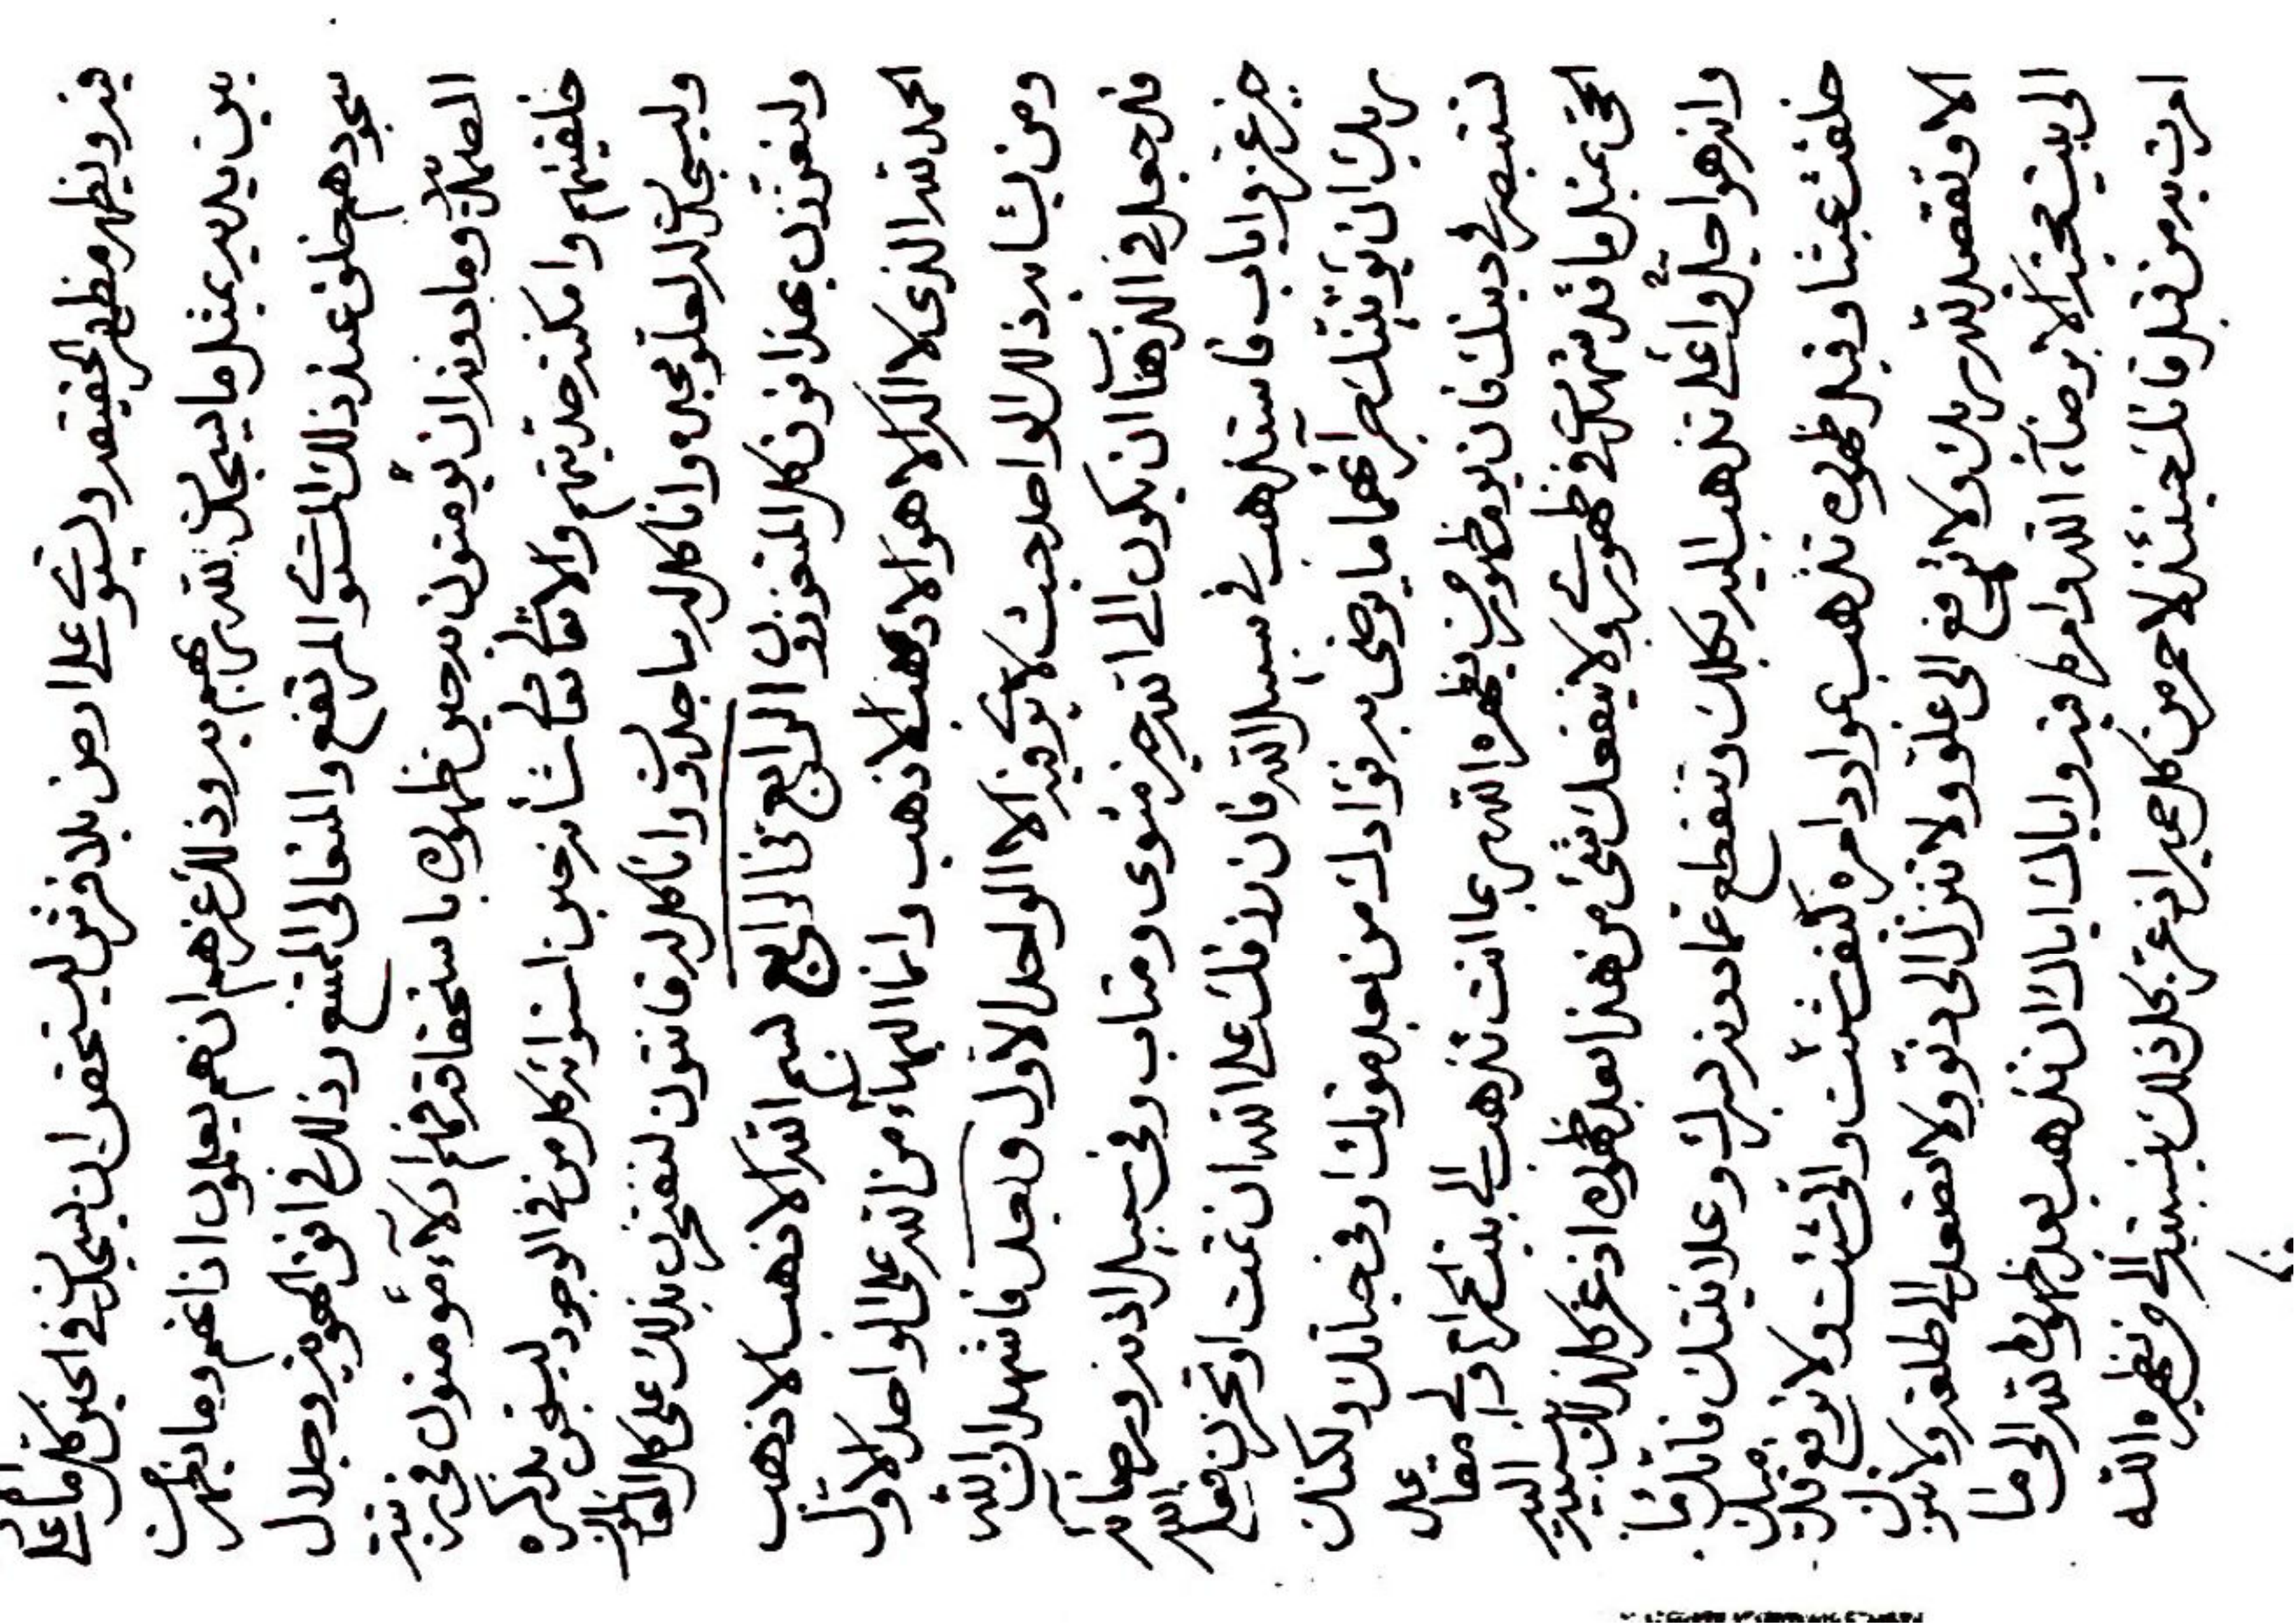 فيه ويظهر مظهر الحقيقة وليستوي على ارض بلا فرش ليستحقن ان يسجدن في الحين كل ما على
بين يديه بمثل ما يسجدن لله ربهم به وذلك عزهم ان هم يعلمون اذا عنهم وما يظهرن
سجودهم خلق عند ذلك المستوي المرتفع والمتعالي الممتنع وذلك في افق الهوية وجلال
الصمدية وما دونه ان يؤمنون به حين ظهوره باستحقاقه فهم ادلاء مؤمنون في رتبة
خلقيتهم وامكنة حديتهم والا تعالى تعالى شأنه حين استوائه كل من في الوجود ليسبحن بذكره
وليسجدن له لعلو مجده وانا كل له ساجدون وانا كل له قانتون لتفتخرن بذلك على كل
ولتعززن بهذا فوق كل المتعززون الرابع في الرابع بسم الله الاذهب الاذهب
الحمد لله الذي لا اله الا هو الاذهب الاذهب وانما البهاء من الله على الواحد الاول
ومن يشابه ذلك الواحد حيث لا يرى فيه الا الواحد الاول وبعد فاشهد ان الله
قد جعل في الذهاب ان يكون الى الله خير مثوى ومتاب وفي سبيل اذنه ورضائه
خير عز واياب فاستذهب في سبيل الله فان رزقك على الله ان تمت او تحزن فعلى الله
ربك ان يؤتينك جزائهما ما يرضى به فؤادك من بعد موتك او في حياتك ولكنك
لتتبصر في دينك فان يوم ظهور من يظهره الله ربما انت تذهب الى بيت الحرام والى مقاعد
الحق بمثل ما قد شهدت في ظهوري ولا ينفعك شيء من هذا بعد ظهوره اذ عز كل ذلك بنسبته اليه
وانه هو احل واعلى تذهب اليه بكلك وتنقطع عما دونه بسرك وعلانيتك فانك ما
خلقت عبثا وقبل ظهوره تذهب عوادد امره كيف شئت وانى شئت ولا ترفع قدميك
الا وتقصد لله ربك ولا ترفع الى علو ولا تنزل الى دنو ولا تصعد الى طلعة ولا تنزلن
الى بيت محبة الا برضاء الله وامره فيه واياك اياك ان تذهب بعد ظهور الله الى ما
امرت به من قبل فانك حينئذ لاحمر من كل حمير اذ عز بكل ذلك بنسبته الى من يظهره الله